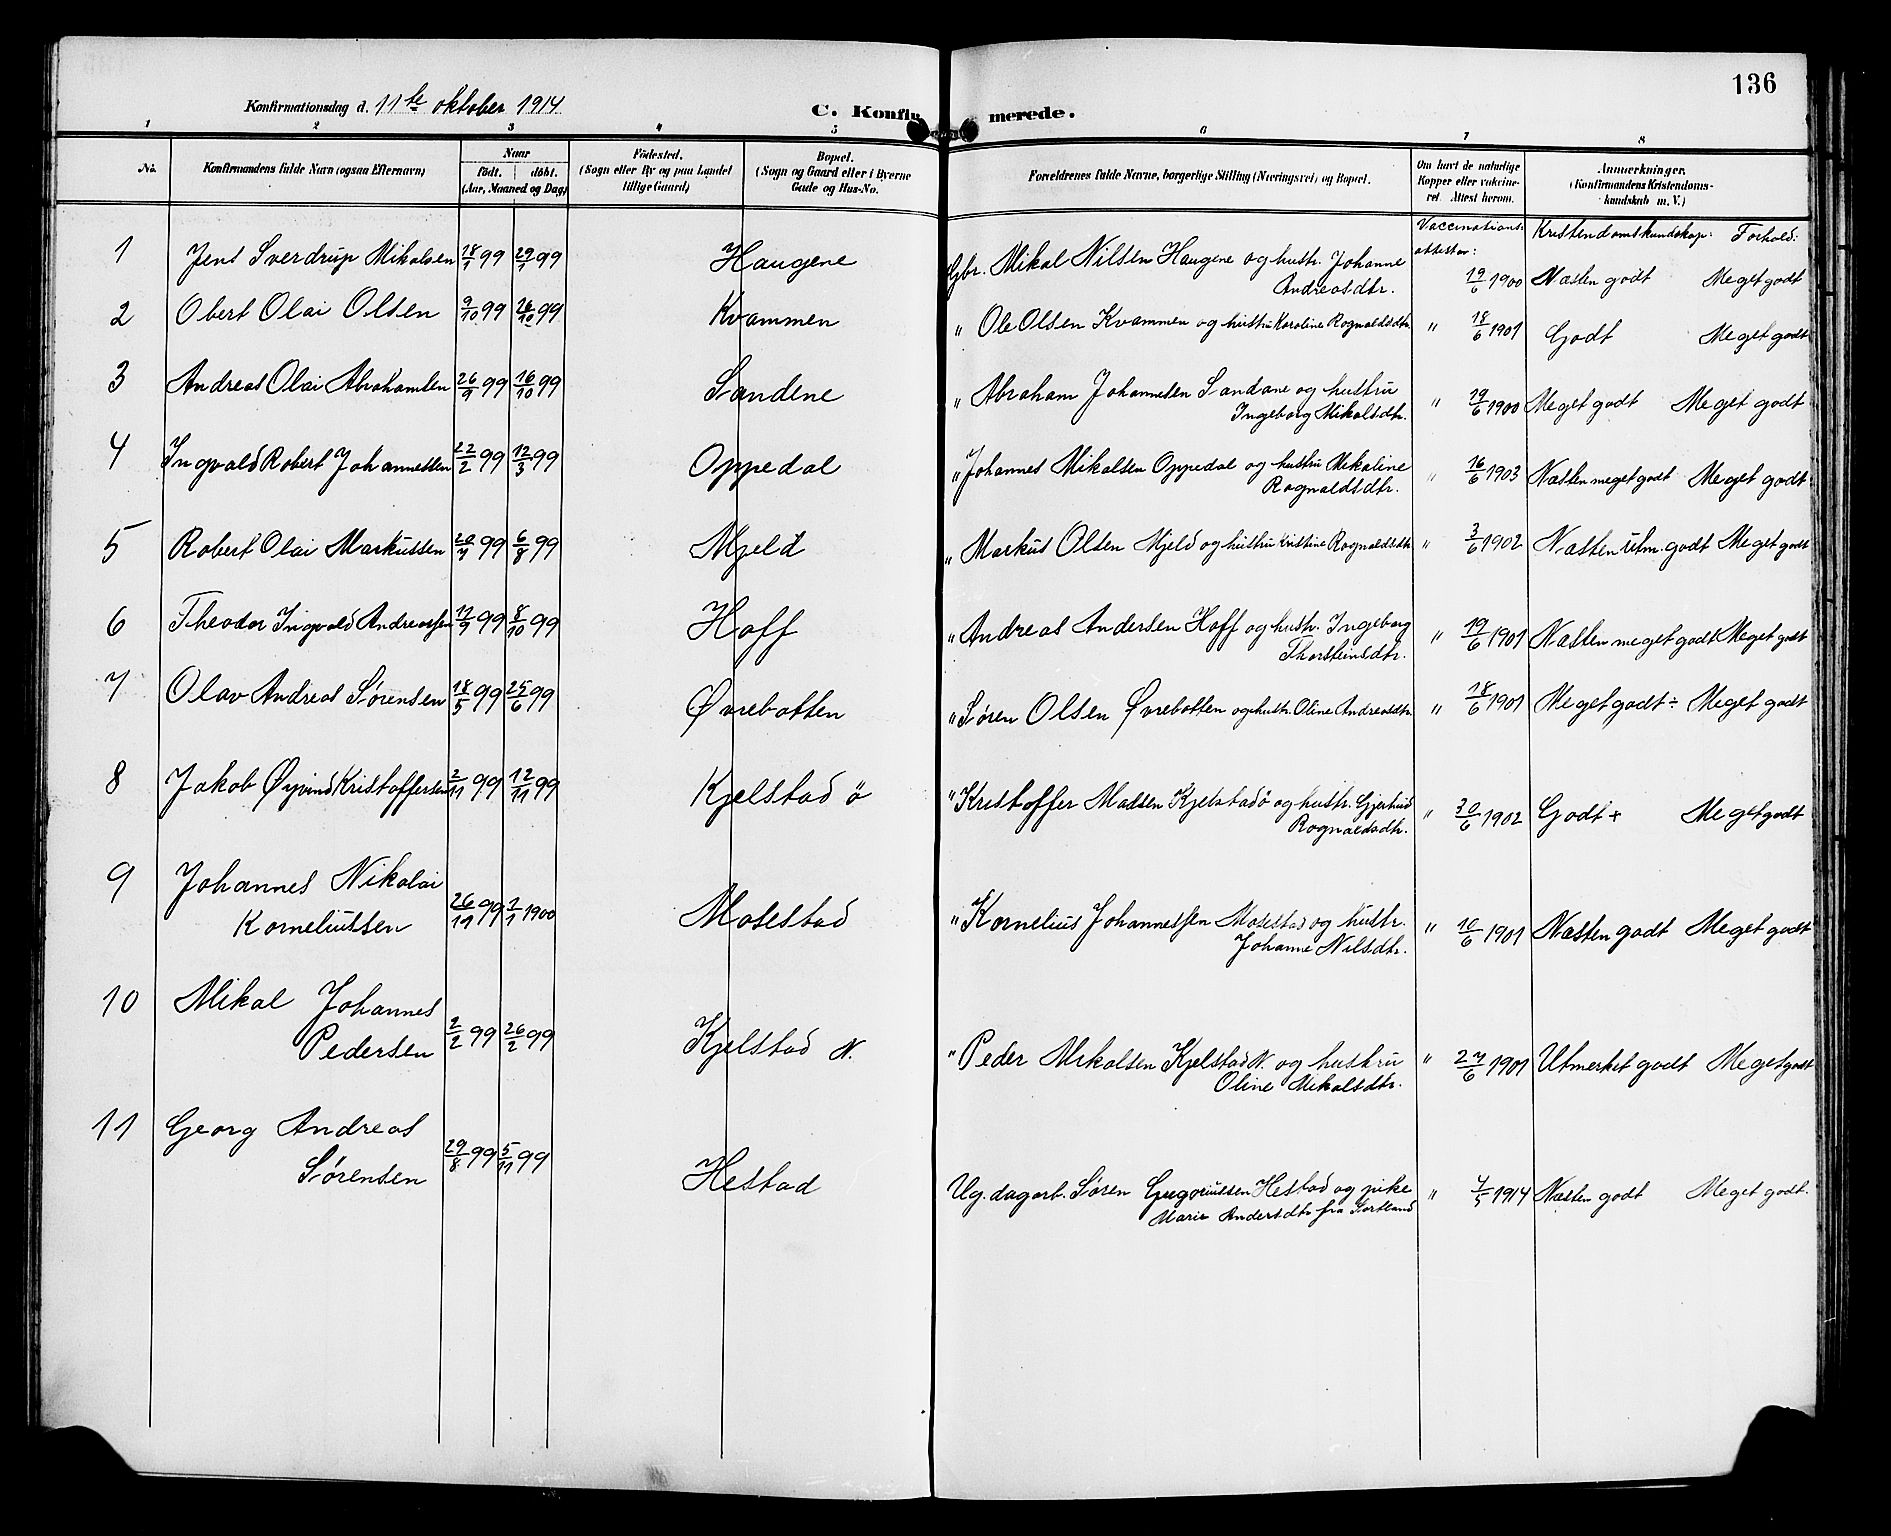 136
Konfirmationsdag d. 11te oktober 1914.
C. Konfirmerede.
1 2 3 4 5 6 7 8
No.
Konfirmandens fulde Navn (ogsaa Efternavn)
Naar
født. døbt.
(Aar, Maaned og Dag)
Fødested.
(Sogn eller By og paa Landet
tillige Gaard)
Bopæl.
(Sogn og Gaard eller i Byerne
Gade og Hus-No.
Forældrenes fulde Navne, borgerlige Stilling (Næringsvei) og Bopæl.
Om havt de naturlige
Kopper eller vakcineret.
Attest herom.
Anmærkninger.
(Konfirmandens Kristendomskundskab
m. V.)
Vaccinations-
attester:
Kristendomskundskap: Forhold:
1 Jens Sverdrup Mikalsen 18/1 99 29/1 99 Haugene Gbr. Mikal Nilsen Haugene og hustr. Johanne
Andreasdtr. 19/6 1900 Næsten godt Meget godt
2 Obert Olai Olsen 9/10 99 26/10 99 Kvammen " Ole Olsen Kvammen og hustru Karoline Rognaldsdtr. " 18/6 1901 Godt Meget godt
3 Andreas Olai Abrahamsen 26/9 99 16/10 99 Sandene " Abraham Johannesen Sandane og hustru
Ingeborg Mikalsdtr. " 19/6 1900 Meget godt Meget godt
4 Ingvald Robert Johannessen 22/2 99 12/3 99 Oppedal " Johannes Mikalsen Oppedal og hustru Mikaline
Rognaldsdtr. " 16/6 1903 Næsten meget godt Meget godt
5 Robert Olai Markussen 20/7 99 6/8 99 Mjeld " Markus Olsen Mjeld og hustru Kristine Rognaldsdtr " 3/6 1902 Næsten utm. godt Meget godt
6 Theodor Ingvald Andreassen 12/9 99 8/10 99 Hoff " Andreas Andersen Hoff og hustr. Ingeborg
Thorsteinsdtr. " 19/6 1901 Næsten meget godt Meget godt
7 Olav Andreas Sørensen 18/5 99 25/6 99 Øvrebotten " Søren Olsen Øvrebotten og hustr. Oline Andreasdtr. " 18/6 1901 Meget godt ÷ Meget godt
8 Jakob Øyvind Kristoffersen 2/11 99 12/11 99 Kjelstad ö " Kristoffer Madsen Kjelstad ö og hustr. Gjertrud
Rognaldsdtr. " 30/6 1902 Godt + Meget godt
9 Johannes Nikolai
Korneliussen 26/11 99 7/1 1900 Mosestad " Kornelius Johannessen Mosestad og hustr.
Johanne Nilsdtr. " 10/6 1901 Næsten godt Meget godt
10 Mikal Johannes
Pedersen 2/2 99 26/2 99 Kjelstad N. " Peder Mikalsen Kjelstad N. og hustru
Oline Mikalsdtr. " 27/6 1901 Utmerket godt Meget godt
11 Georg Andreas
Sørensen 29/8 99 5/11 99 Hestad Ug. dagarb. Søren Gregoriussen Hestad og pike
Marie Andersdtr fra " 7/5 1914 Næsten godt Meget godt.